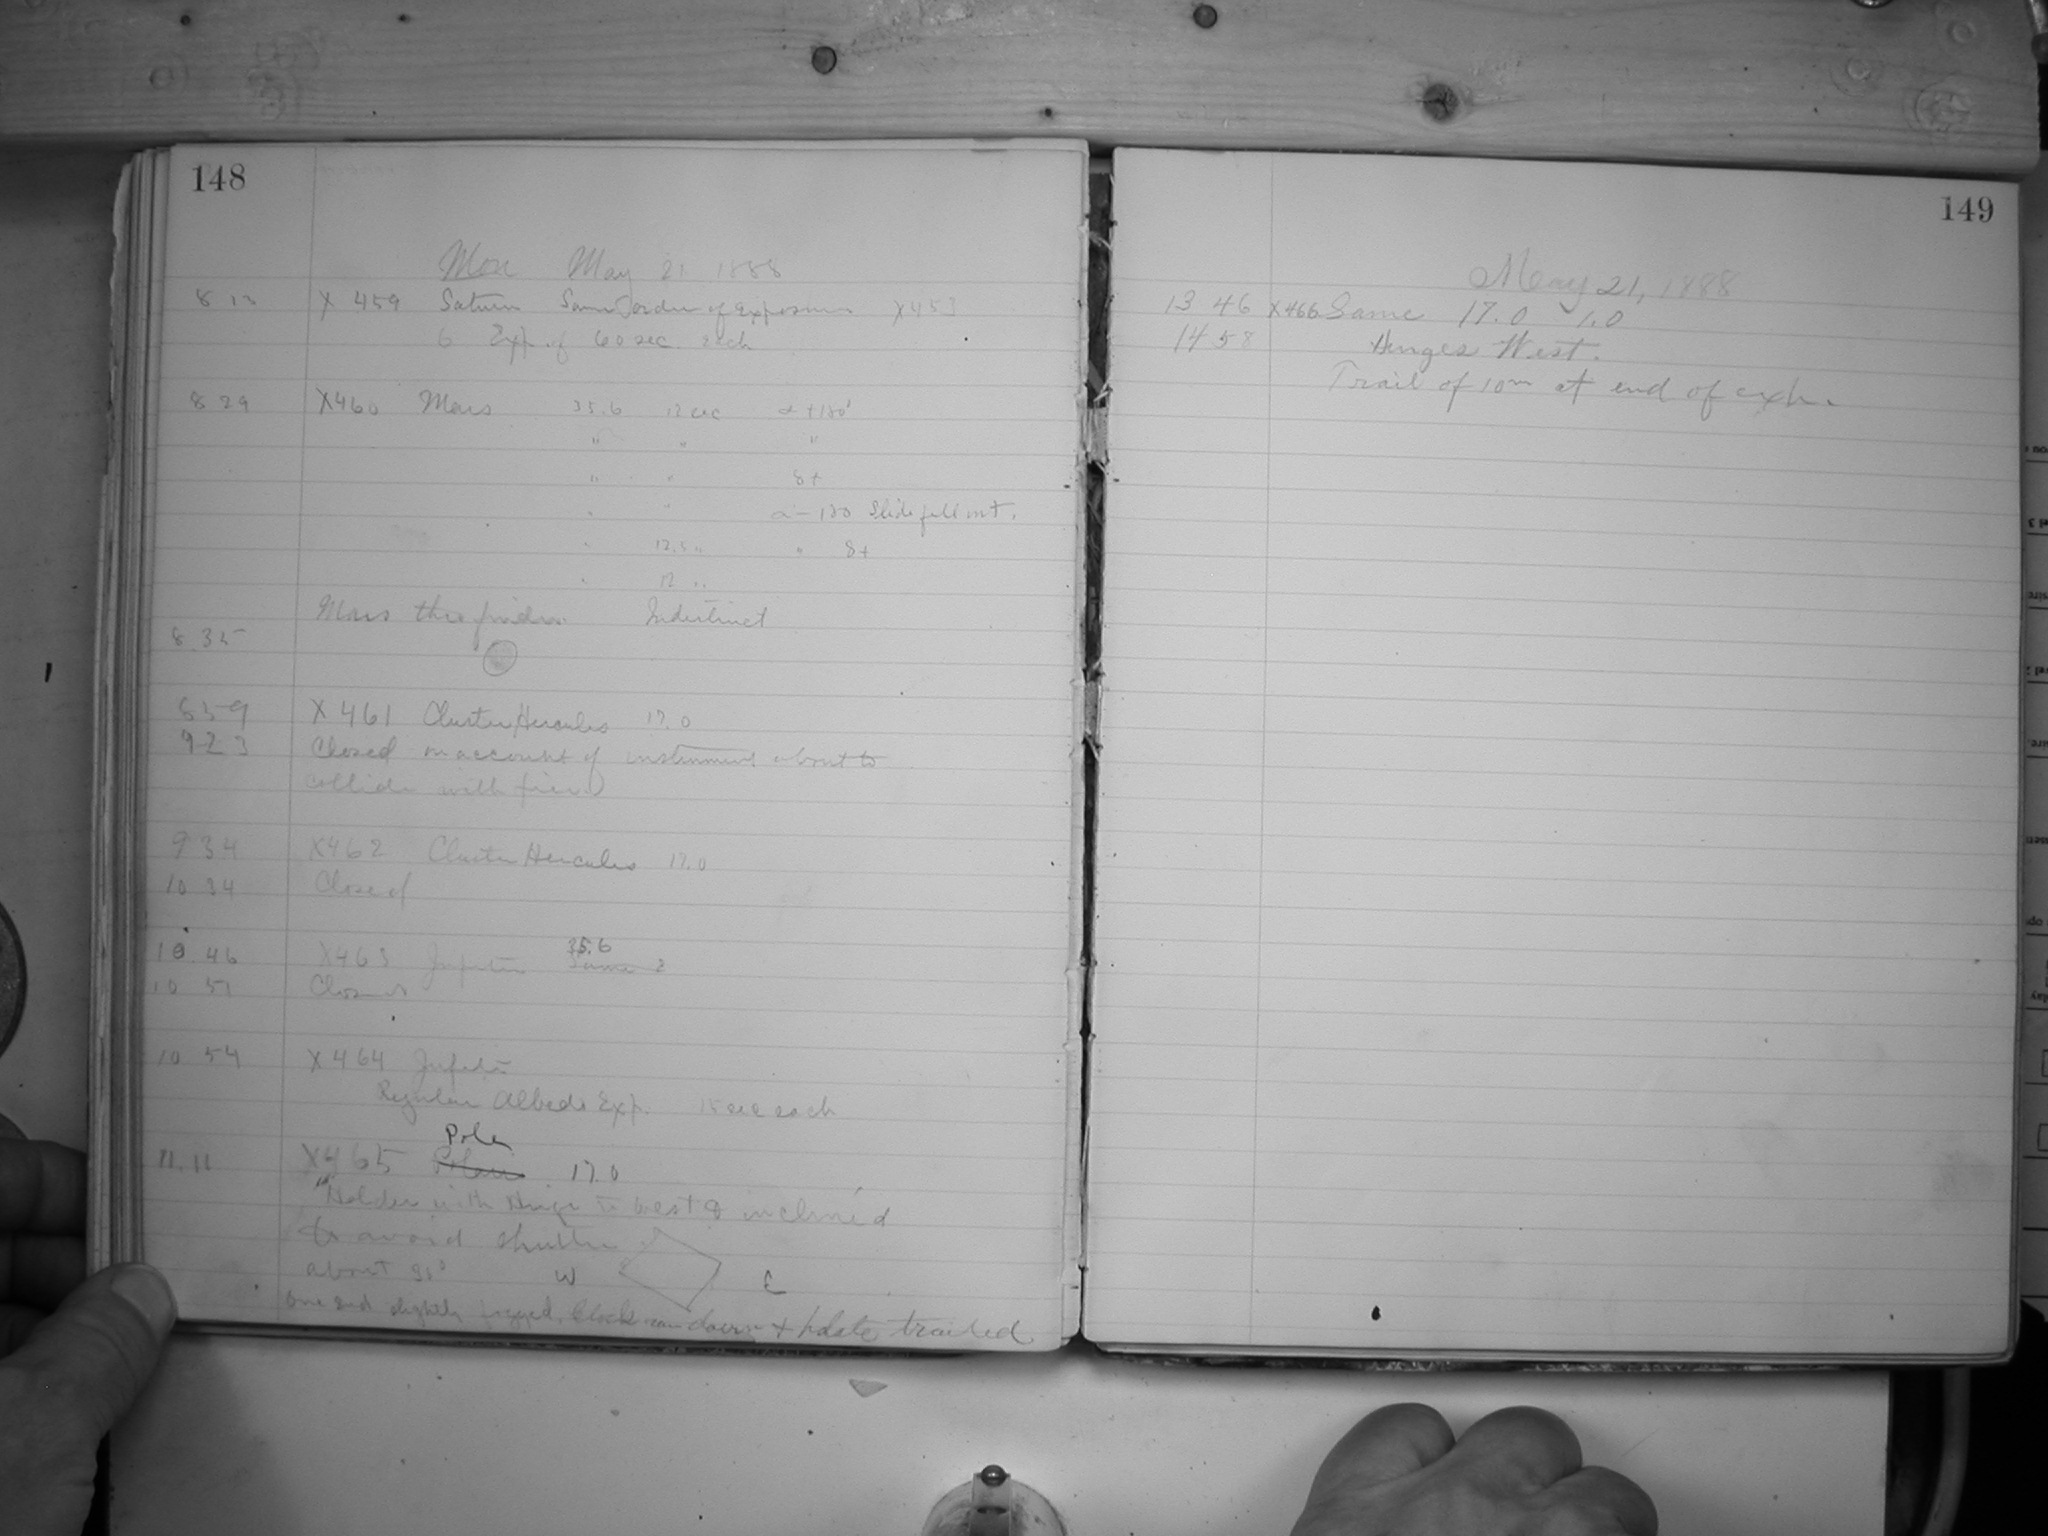 148
Mon May 21 1888
X 459 Saturn Same order of Exposures X453
6 Exp. of 60 sec. each
8 29 X460 Mars 35.6 12 sec α +180°
" " "
" " δ+
" " α - 180 Slide fell out.
" 12.5 " " δ+
" 12 "
Mars thro finder Indistinct
8 35
8 59 X 461 Cluster Hercules 17.0
9 23 Closed on account of instrument about to
collide with
9 34 X462 Cluster Hercules 17.0
10 34 Closed
35.6
10 46 X463 Jupiter Same
10 51 Closed
10 54 X464 Jupiter
Regular Albedo Exp. 15 sec each
Pole
11.11 X465 17.0
Holder with Hinge to west & inclined
to avoid shutter
about W E
One end slightly fogged. Clock ran down & plate trailed
149
May 21, 1888
13 46 X466 Same 17.0 1.0
14 58 Hinges West.
Trail of 10m at end of exp.